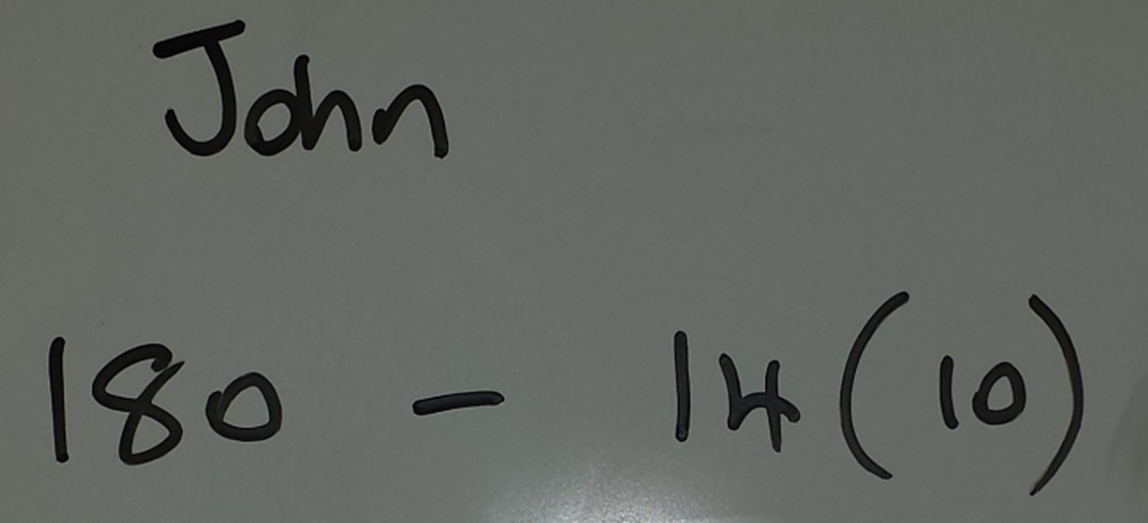 John
180 - 14 (10)